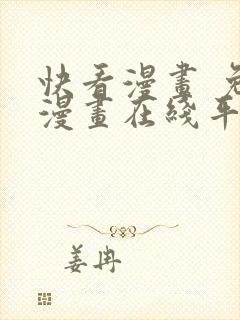 快看漫畫 免
漫畫在綫平
姜冉